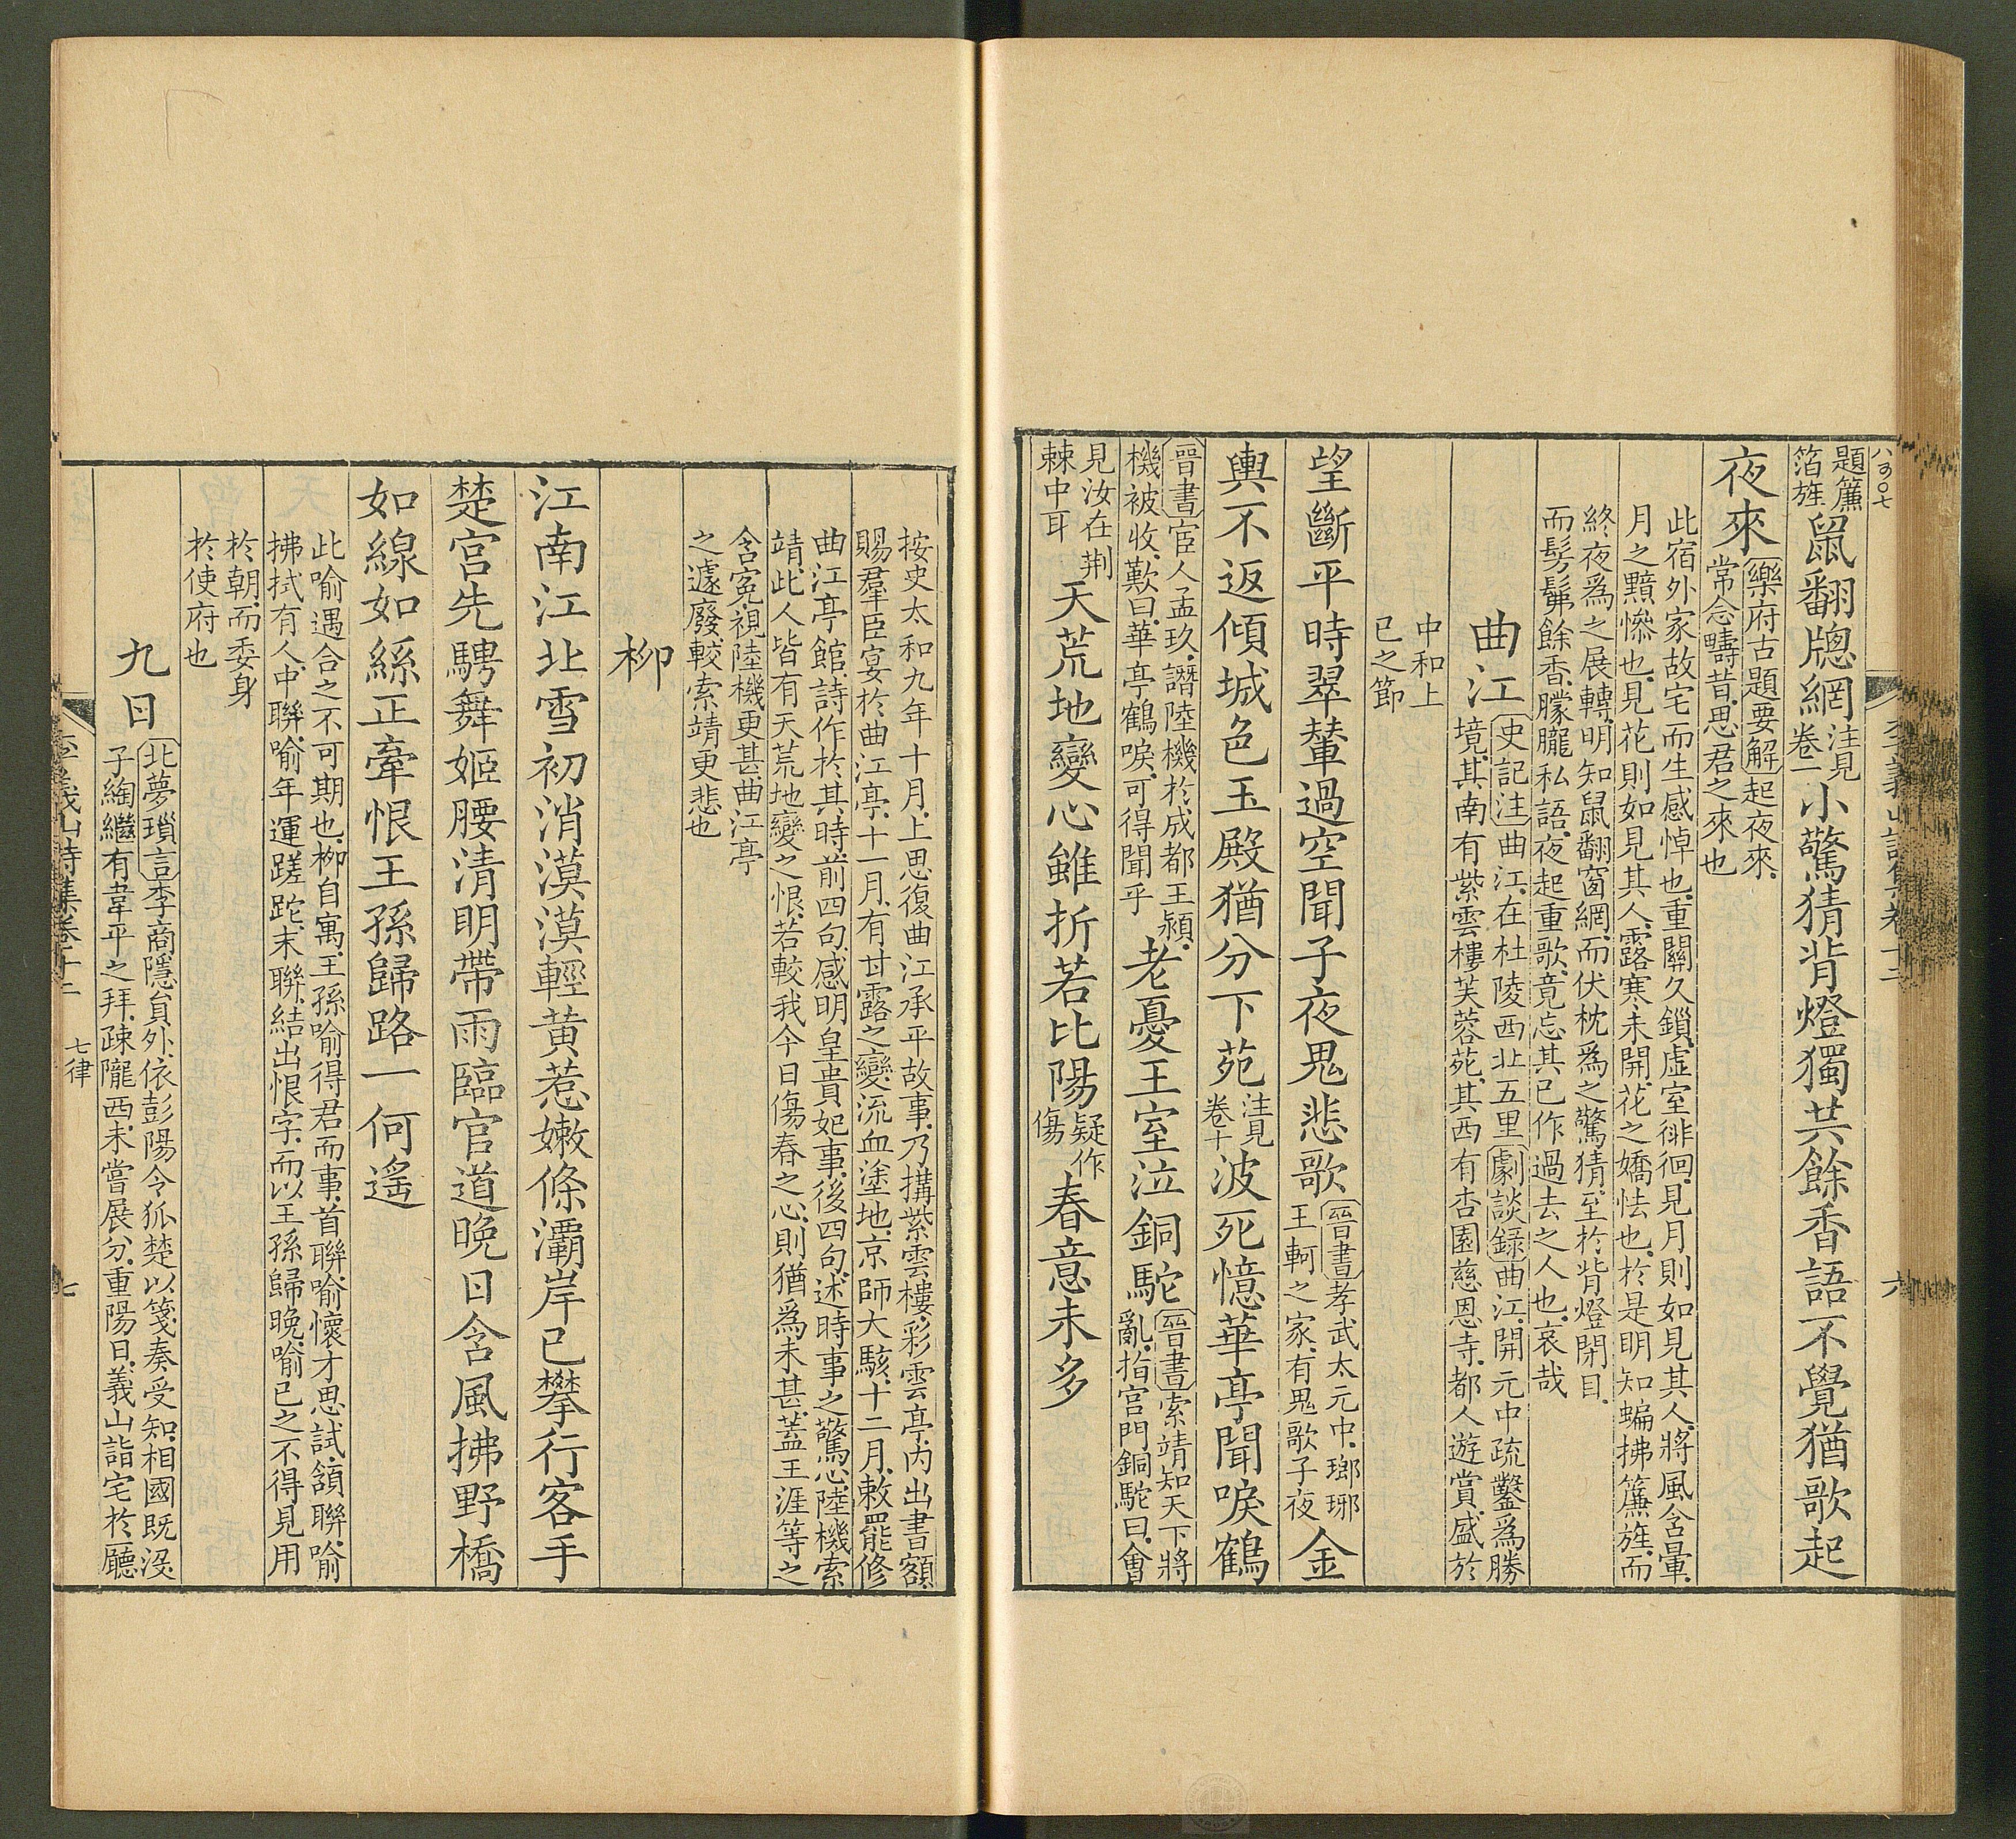 題簾
箔旌
鼠翻牕網
注見
卷一
小驚猜背燈獨共餘香語不覺猶歌起
夜來
樂府古題要解起夜來
常念疇昔思君之來也
此宿外家故宅而生感悼也重關久鎖虛室徘徊見月則如見其人將風含暈
月之黯慘也見花則如見其人露寒未開花之嬌怯也於是明知蝙拂簾旌而
終夜爲之展轉明知鼠翻窗網而伏枕爲之驚猜至於背燈閉目
而髣髴餘香朦朧私語夜起重歌竟忘其已作過去之人也哀哉
曲江
史記注曲江在杜陵西北五里劇談録曲江開元中疏鑿爲勝
境其南有紫雲樓芙蓉苑其西有杏園慈恩寺都人遊賞盛於
中和上
巳之節
望斷平時翠輦過空聞子夜鬼悲歌
晉書孝武太元中瑯琊
王軻之家有鬼歌子夜
金
輿不返傾城色玉殿猶分下苑
注見
卷十
波死憶華亭聞唳鶴
晉書宦人孟玖譖陸機於成都王潁
機被收歎曰華亭鶴唳可得聞乎
老憂王室泣銅駝
晉書索靖知天下將
亂指宫門銅駝曰會
見汝在荆
棘中耳
天荒地變心雖折若比陽
疑作
傷
春意未多
李義山詩集卷十二
六
按史太和九年十月上思復曲江承平故事乃搆紫雲樓彩雲亭内出書額
賜羣臣宴於曲江亭十一月有甘露之變流血塗地京師大駭十二月敕罷修
曲江亭館詩作於其時前四句感明皇貴妃事後四句述時事之驚心陸機索
靖此人皆有天荒地變之恨若較我今日傷春之心則猶爲未甚蓋王涯等之
含寃視陸機更甚曲江亭
之遽廢較索靖更悲也
柳
江南江北雪初消漠漠輕黄惹嫩條灞岸已攀行客手
楚宫先騁舞姬腰清明帶雨臨官道晚日含風拂野橋
如線如絲正牽恨王孫歸路一何遥
此喻遇合之不可期也柳自寓王孫喻得君而事首聯喻懷才思試頷聯喻
拂拭有人中聯喻年運蹉跎末聯結出恨字而以王孫歸晚喻已之不得見用
於朝而委身
於使府也
九日
北夢瑣言李商隱員外依彭陽令狐楚以箋奏受知相國既没
子綯繼有韋平之拜疎隴西未嘗展分重陽日義山詣宅於廳
李義山詩集卷十二
七律
七